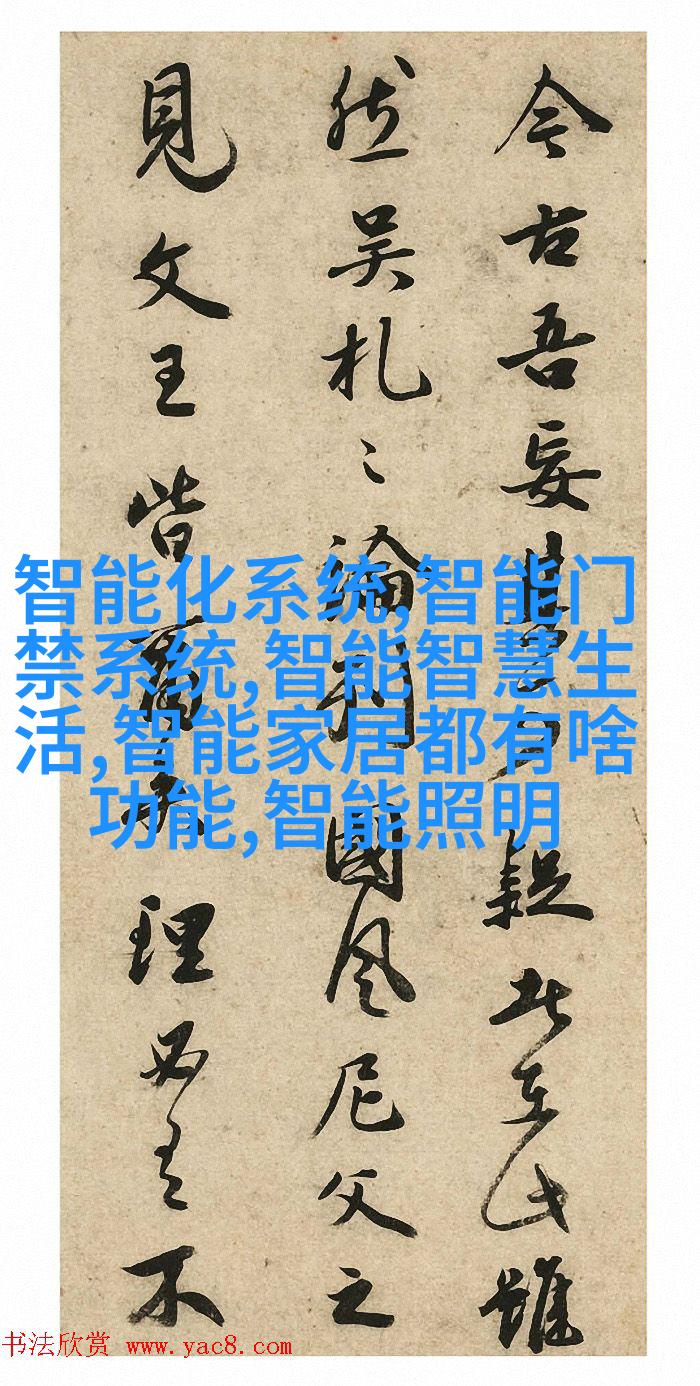 今古吾妄疑在此雖
然吴札〻論國風尼父之
見文王皆理必有不
智能化系统,智能门
禁系统,智能智慧生
活,智能家居都有啥
功能,智能照明
书法欣赏 www.yac8.com